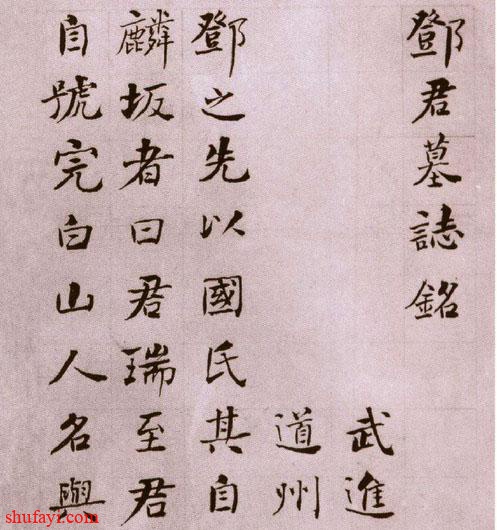 鄧君墓誌銘
武進
道州
鄧之先以國氏其自
麟坂者曰君瑞至君
自號完白山人名與
shufayi.com